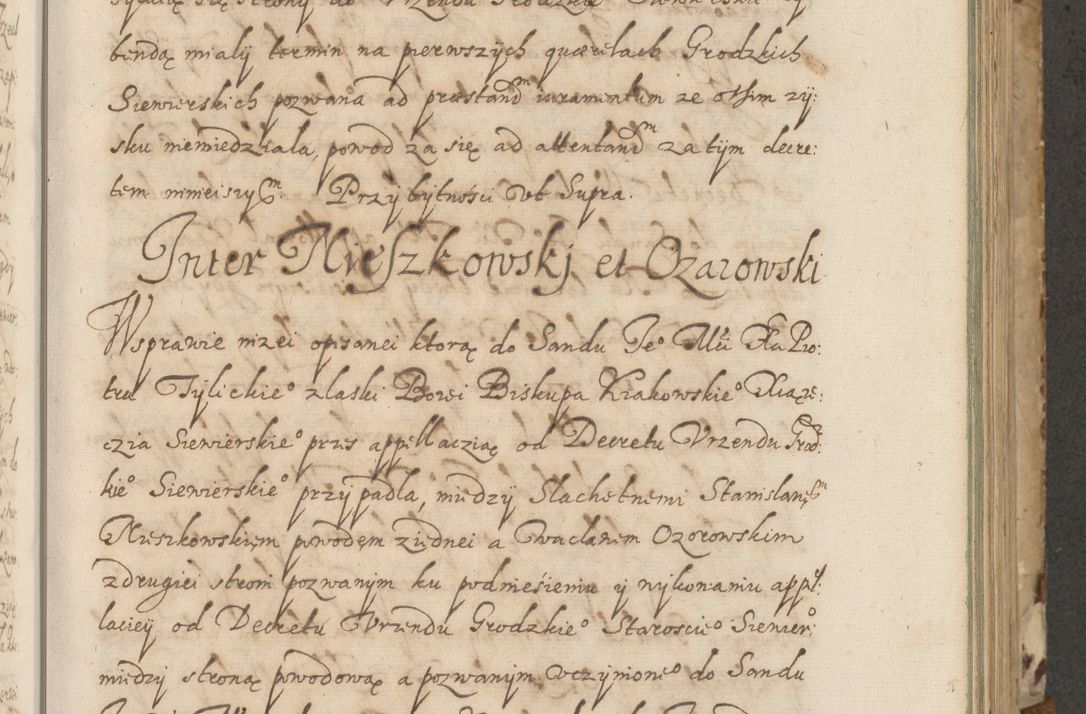 bendą mialy termin na pierwszych querelach Grodzkich
Siewierskich pozwana ad præstandm iuramentum ze othim zy:
sku niewiedziala, powod za się ad attentandm za tym decre:
tem mnieiszym. Przy bytnosci Vt Supra.
Inter Mieszkowskj et Ozarowski
W sprawie nizei opisanei ktorą do Sandu Jeo Mći Xa Pio:
tra Tylickieo z laski Bozei Biskupa Krakowskieo Xiązę:
czia Siewierskieo przes appellaczią od Decretu Vrzendu Grodz:
kieo Siewierskieo przypadla, miedzy Slachetnemi Stanislawem
Mieszkowskiem powodem z iednei a Waclawem Ozorowskim
z drugiei stroni pozwanym ku podniesieniu y wykonaniu appel:
laciey od Decretu Vrzendu Grodzkieo Staroscieo Siewier:
miedzy stroną powodową a pozwanym vczynioneo do Sandu